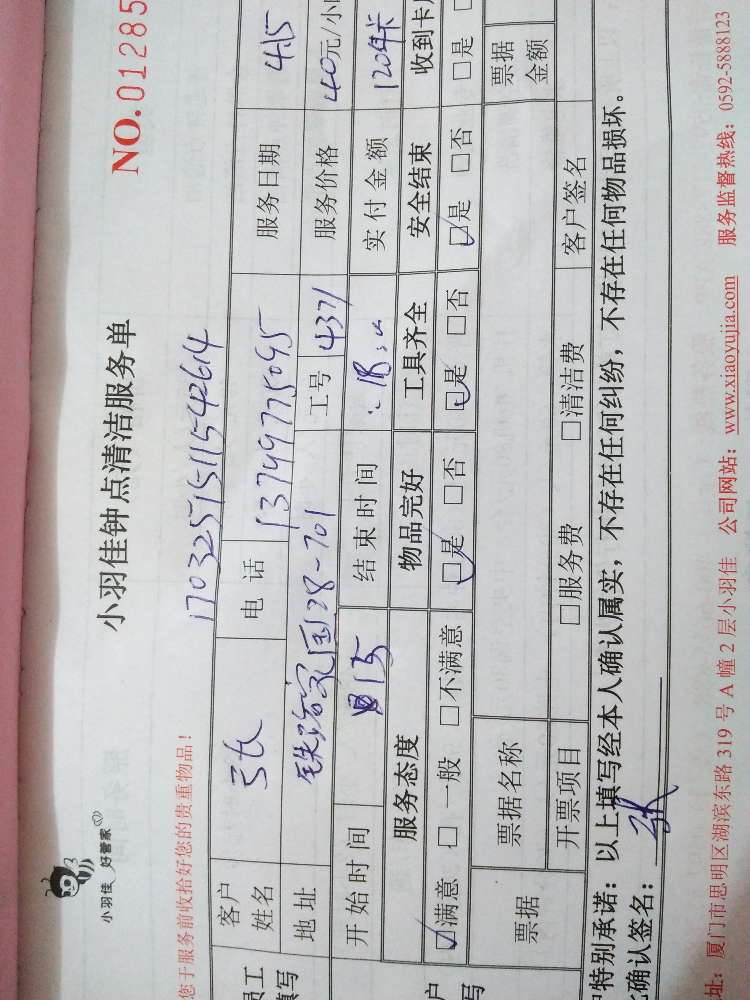 小羽佳 好管家
小羽佳钟点清洁服务单
NO.01285
您于服务前收拾好您的贵重物品!
170325151154264
客户姓名 张 电话 13749775095 服务日期 4.15
地址 28-701 工号 4371 服务价格 40元/小
开始时间 15 结束时间 18 实付金额 120年卡
服务态度 物品完好 工具齐全 安全结束 收到卡
☑满意 □一般 □不满意 ☑是 □否 ☑是 □否 ☑是 □否 □是
票据 票据名称 票据金额
开票项目 □服务费 □清洁费 客户签名
特别承诺:以上填写经本人确认属实,不存在任何纠纷,不存在任何物品损坏。
确认签名:张
址:厦门市思明区湖滨东路319号A幢2层小羽佳 公司网站:www.xiaoyujia.com 服务监督热线:0592-5888123